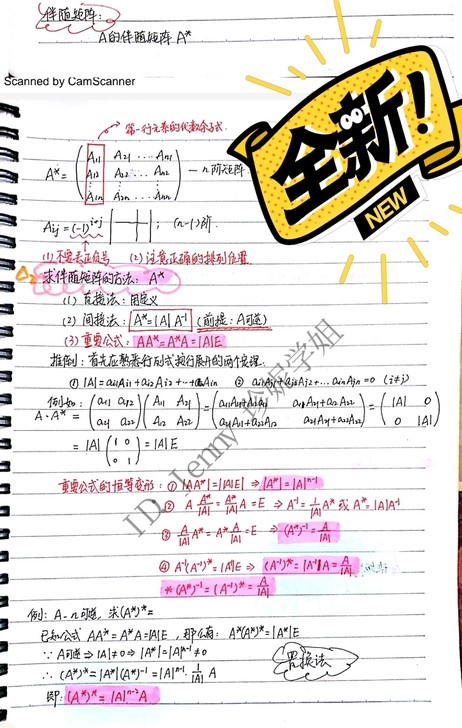 伴随矩阵:
A的伴随矩阵 A*
Scanned by CamScanner
全新!
NEW
第一行元素的代数余子式.
A* = ( A₁₁ A₂₁ … Aₙ₁
A₁₂ A₂₂ … Aₙ₂
⋮ ⋮ ⋮
A₁ₙ A₂ₙ … Aₙₙ ) — n阶矩阵
Aij = (-1)^(i+j) ; (n-1)阶.
(1) 不要丢正负号 (2) 注意正确的排列位置.
求伴随矩阵的方法: A*
(1) 直接法: 用定义
(2) 间接法: A*=|A|A⁻¹ (前提: A可逆)
(3) 重要公式: AA*=A*A=|A|E
推例: 首先应熟悉行列式按行展开的两个定理.
① |A|=ai1Ai1+ai2Ai2+…+ainAin ② ai1Aj1+ai2Aj2+…ainAjn=0 (i≠j)
例如:
A·A* = ( a₁₁ a₁₂ ; a₂₁ a₂₂ ) ( A₁₁ A₂₁ ; A₁₂ A₂₂ ) = ( a₁₁A₁₁+a₁₂A₁₂ a₁₁A₂₁+a₁₂A₂₂ ; a₂₁A₁₁+a₂₂A₁₂ a₂₁A₂₁+a₂₂A₂₂ ) = ( |A| 0 ; 0 |A| )
= |A| ( 1 0 ; 0 1 ) = |A|E
重要公式的恒等变形: ① |AA*|=||A|E| ⇒ |A*|=|A|ⁿ⁻¹
② A A*/|A| = A*/|A| A = E ⇒ A⁻¹ = 1/|A| A* 或 A*=|A|A⁻¹
③ A/|A| A* = A* A/|A| = E ⇒ (A*)⁻¹ = A/|A|
④ A⁻¹(A⁻¹)* = |A⁻¹|E ⇒ (A⁻¹)* = |A⁻¹|A = A/|A|
* (A*)⁻¹ = (A⁻¹)* = A/|A|
例: A-n可逆, 求(A*)*=
已知公式 AA*=A*A=|A|E, 那么有: A*(A*)*=|A*|E
∵ A可逆 ⇒ |A|≠0 ⇒ |A*|=|A|ⁿ⁻¹≠0
置换法
∴ (A*)* = |A*|(A*)⁻¹ = |A|ⁿ⁻¹ · 1/|A| A
即: (A*)* = |A|ⁿ⁻² A
ID Jenny 珍妮学姐